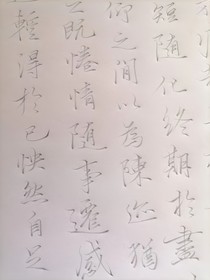 短随化終期於盡
仰之間以為陳迹猶
之既惓情随事遷感
得於已怏然自足